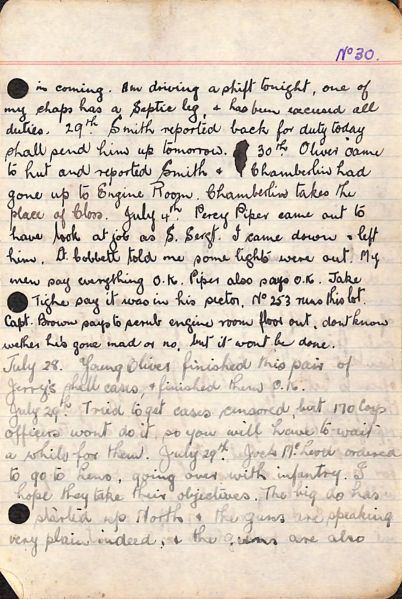 No 30.
is coming. Am driving a shift tonight, one of
my chaps has a Septic leg, & has been excused all
duties. 29th Smith reported back for duty today
shall send him up tomorrow. 30th Oliver came
to hut and reported Smith & Chamberlin had
gone up to Engine Room. Chamberlin takes the
place of Closs. July 4th Percy Piper came out to
have look at job as S. Sergt. I came down & left
him. Lt Cobbett told me some lights were out. My
men say everything O.K. Piper also says O.K. Jake
Tighe say it was in his sector, No 253 runs this lot.
Capt. Brown says to scrub engine room floor out, dont know
wether hes gone mad or no, but it wont be done.
July 28. Young Oliver finished this pair of
Jerry's shell cases, & finished them O.K.
July 29th Tried to get cases censored but 170 Coys
officers wont do it, so you will have to wait
a while for them. July 29th Jock McLeod ordered
to go to Lens, going over with infantry. I
hope they take their objectives. The big do has
started up North & the guns are speaking
very plain indeed, & the guns are also